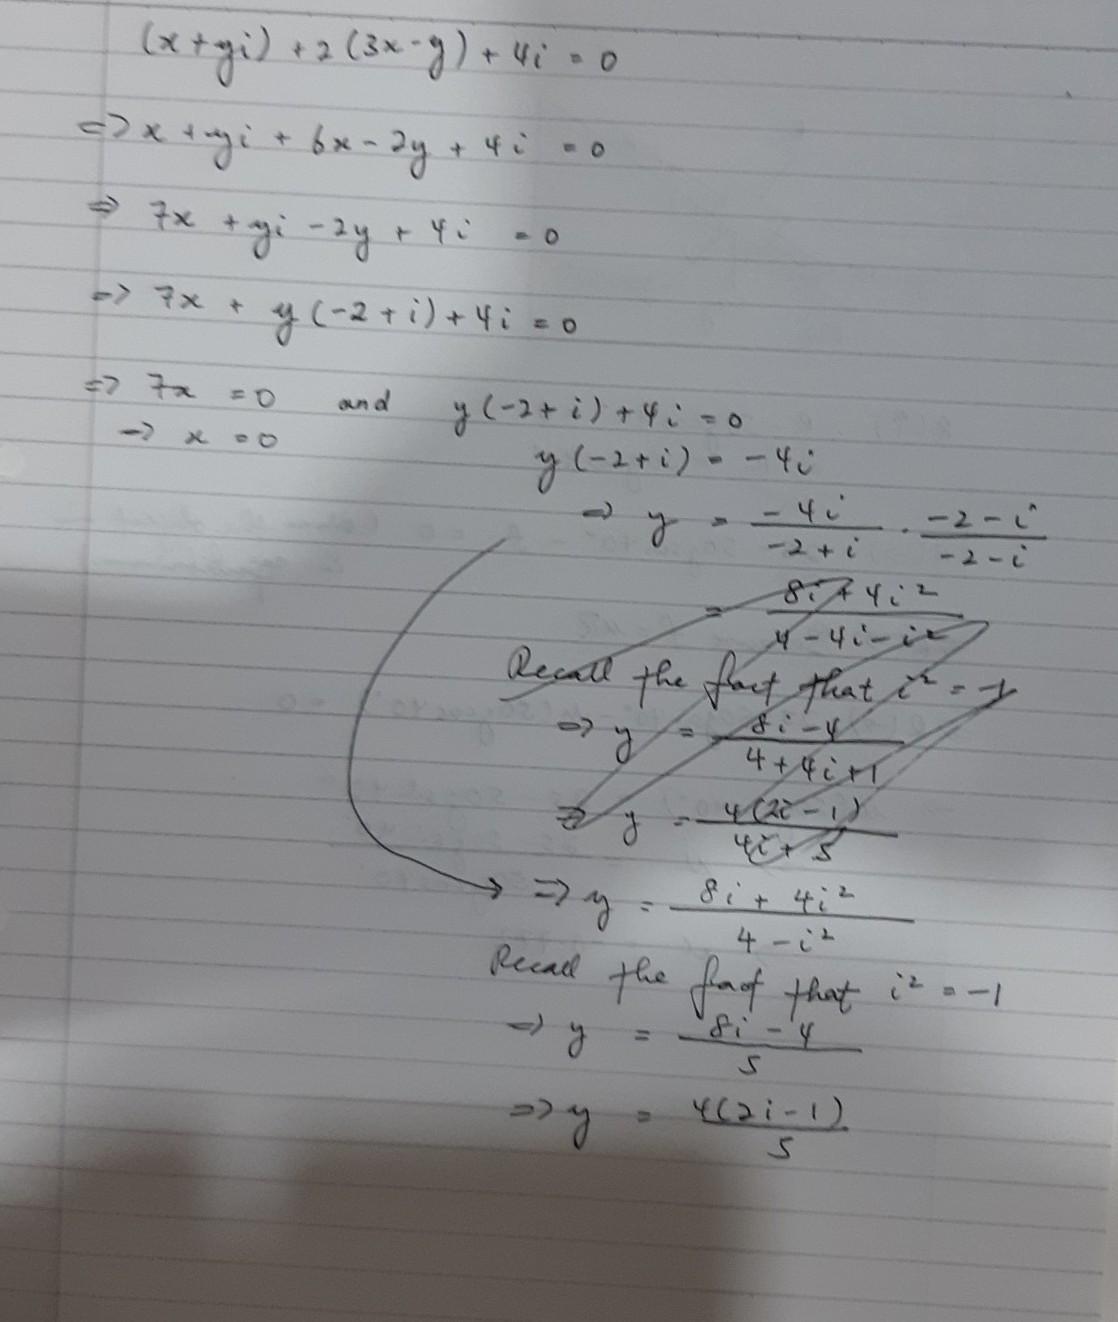 (x+yi) + 2(3x-y) + 4i = 0
=> x + yi + 6x - 2y + 4i = 0
=> 7x + yi - 2y + 4i = 0
=> 7x + y(-2+i) + 4i = 0
=> 7x = 0 and y(-2+i) + 4i = 0
-> x = 0
y(-2+i) = -4i
=> y = -4i/-2+i · -2-i/-2-i
= 8i + 4i²/4-4i-i²
Recall the fact that i² = -1
=> y = 8i-4/4+4i+1
=> y = 4(2i-1)/4i+5
=> y = 8i + 4i²/4-i²
Recall the fact that i² = -1
=> y = 8i-4/5
=> y = 4(2i-1)/5